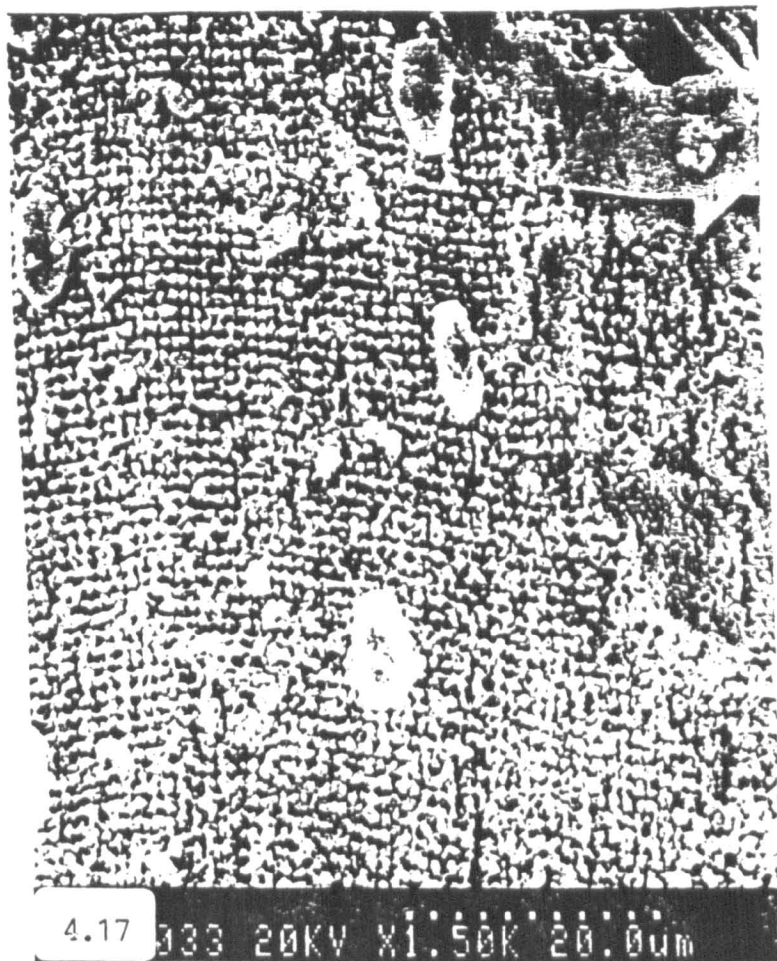 4.17
033 20KV X1.50K 20.0um